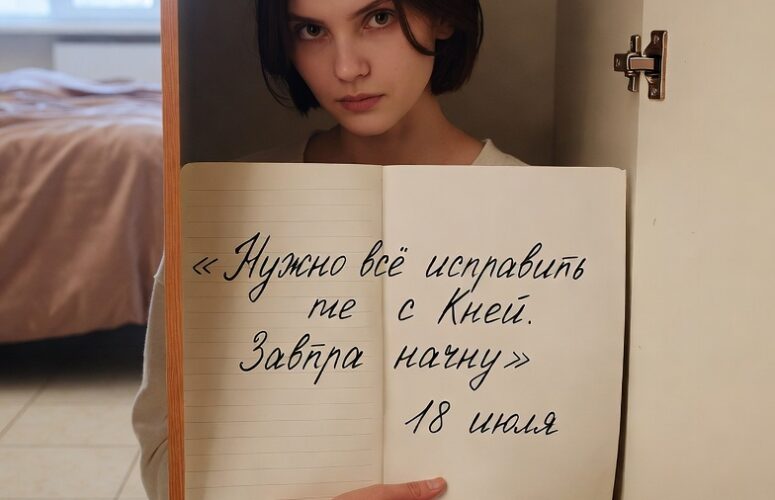 «Нужно всё исправить
те с Кней.
Завтра начну»
18 июля